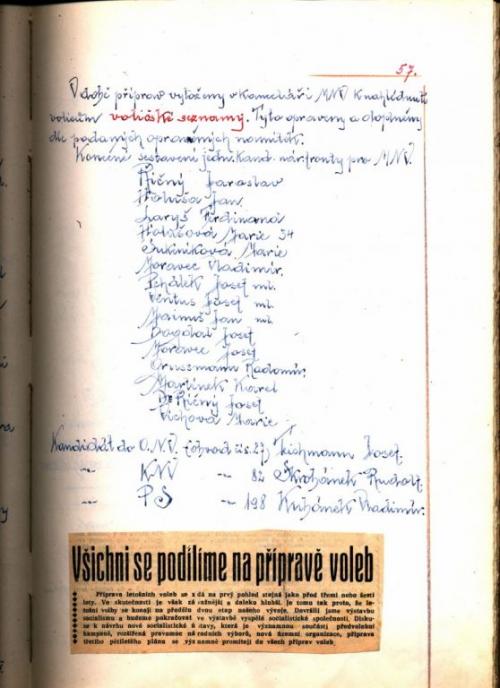 57.
V době příprav vyloženy v kanceláři MNV k nahlédnutí
voličům voličské seznamy. Tyto opraveny a doplněny
dle podaných oprávněných námitek.
Konečné sestavení jedn. kand. nár. fronty pro MNV.
Říčný Jaroslav
Jan
Laryš Ferdinand
Marie 34
Marie
Moravec Vladimír
Josef ml.
Ventus Josef ml.
Jan ml.
Bogdal Josef
Moravec Josef
Radomír
Martínek Karel
Dr Říčný Josef
Marie
Kandidát do O.N.V. (obvod čís. 27) Josef
-"- KNV -"- 82 Rudolf
-"- PS -"- 198 Vladimír.
Všichni se podílíme na přípravě voleb
Příprava letošních voleb se zdá na prvý pohled stejná jako před třemi nebo šesti
lety. Ve skutečnosti je však závažnější a daleko hlubší. Je tomu tak proto, že le-
tošní volby se konají na předělu dvou etap našeho vývoje. Dovršili jsme výstavbu
socialismu a budeme pokračovat ve výstavbě vyspělé socialistické společnosti. Disku-
se k návrhu nové socialistické ústavy, která je významnou součástí předvolební
kampaně, rozšířená pravomoc národních výborů, nová územní organizace, příprava
třetího pětiletého plánu se významně promítají do všech příprav voleb.